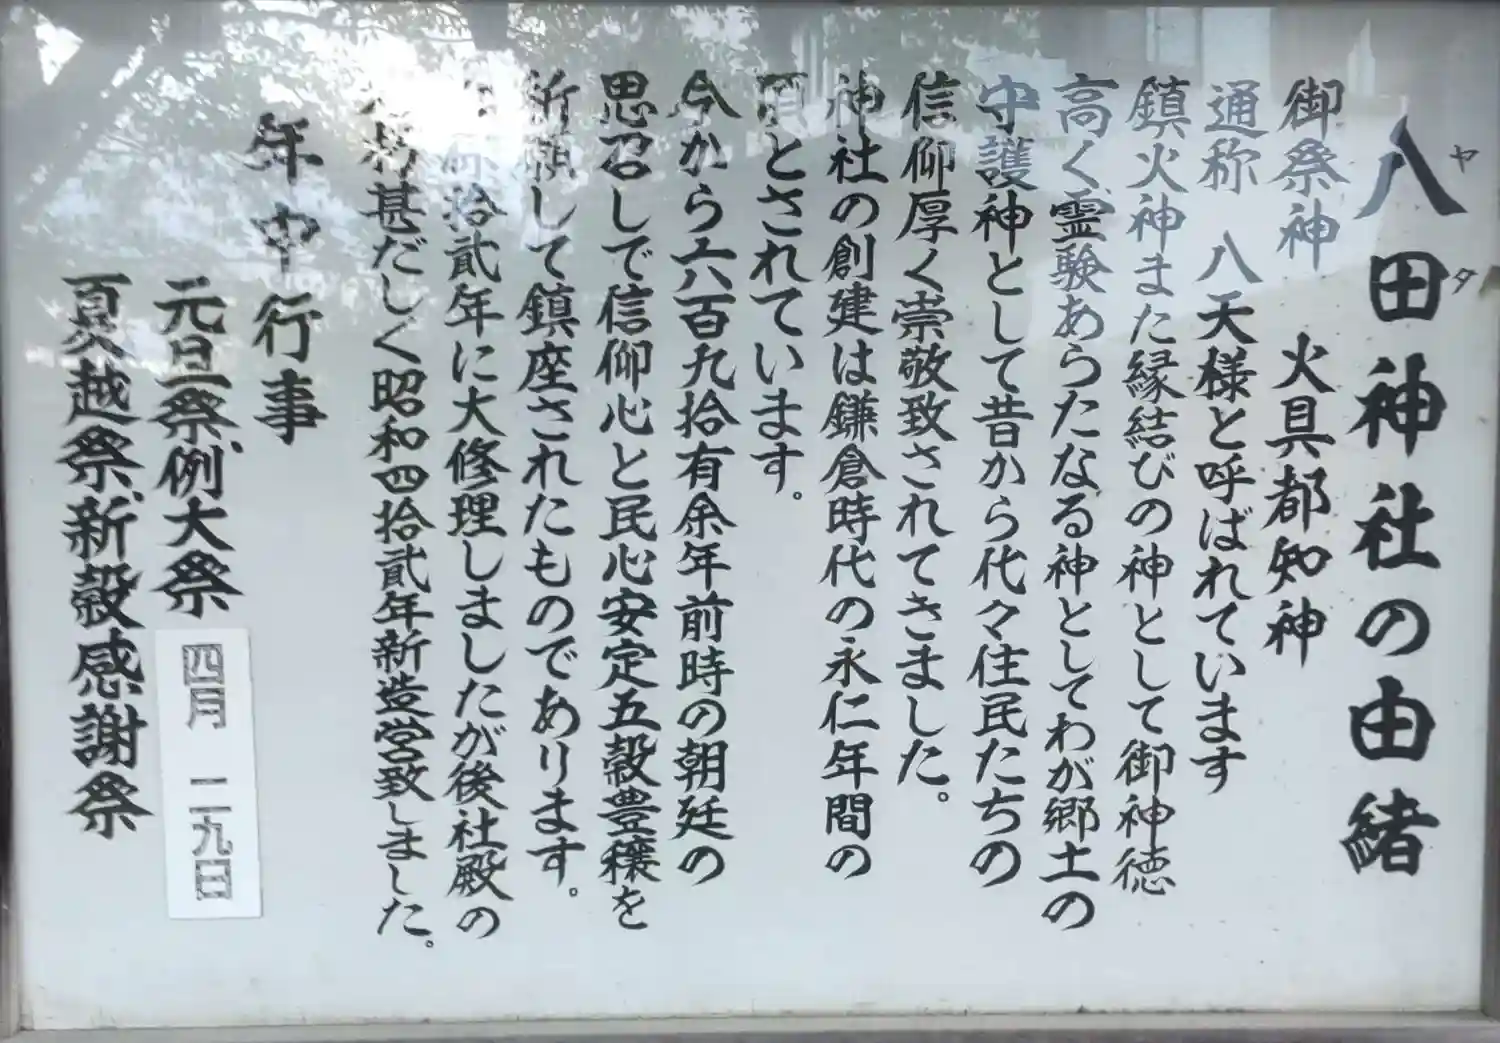 八田神社の由緒
ヤタ
御祭神 火具都知神
通称 八天様と呼ばれています
鎮火神また縁結びの神として御神徳
高く霊験あらたなる神としてわが郷土の
守護神として昔から代々住民たちの
信仰厚く崇敬致されてきました。
神社の創建は鎌倉時代の永仁年間の
頃とされています。
今から六百九拾有余年前時の朝廷の
思召しで信仰心と民心安定五穀豊穣を
祈願して鎮座されたものであります。
拾貳年に大修理しましたが後社殿の
朽甚だしく昭和四拾貳年新造営致しました。
年中行事
元旦祭、例大祭 四月二九日
夏越祭、新穀感謝祭